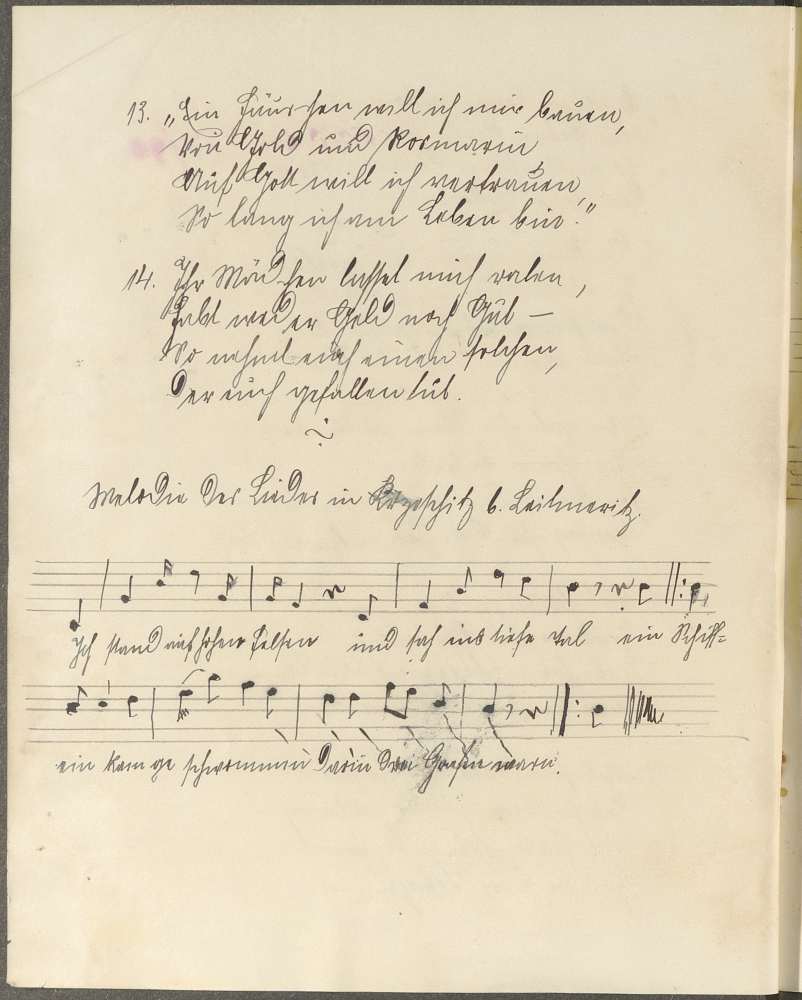 13. „Ein Häuschen will ich mir bauen,
Von Gold und Rosmarin
Auf Gott will ich vertrauen,
So lang ich am Leben bin."
14. Ihr Mädchen lasset euch raten,
Habt weder Geld noch Gut –
So nehmt euch einen solchen,
Der euch gefallen tut.
Melodie des Liedes in b. Leitmeritz.
Ich stand auf hohen Felsen und sah ins tiefe Tal ein Schiff-
ein kam ge schwommen Darin drei Grafen warn.